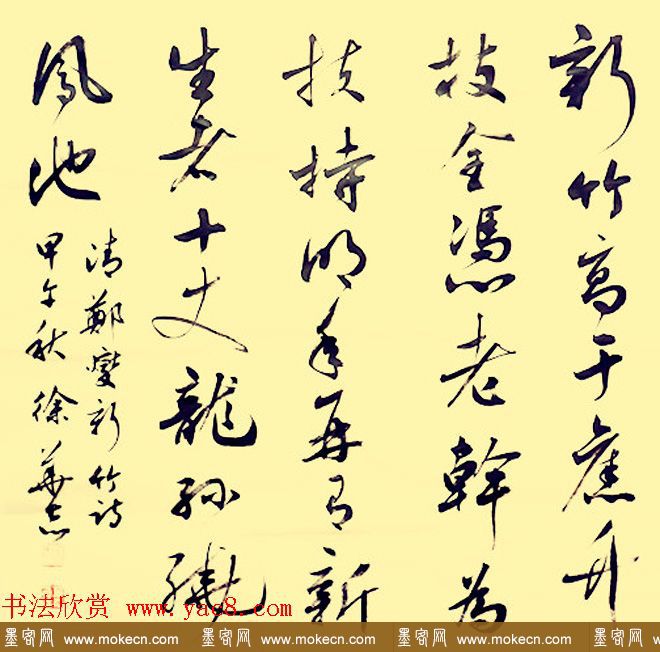 新竹高于舊竹
枝全憑老幹為
扶持明年再有新
生者十丈龍孫繞
鳳池
清鄭燮新竹詩
甲午秋徐華
书法欣赏 www.yac8.com
墨客网 www.mokecn.com 墨客网 www.mokecn.com 墨客网 www.mokecn.com